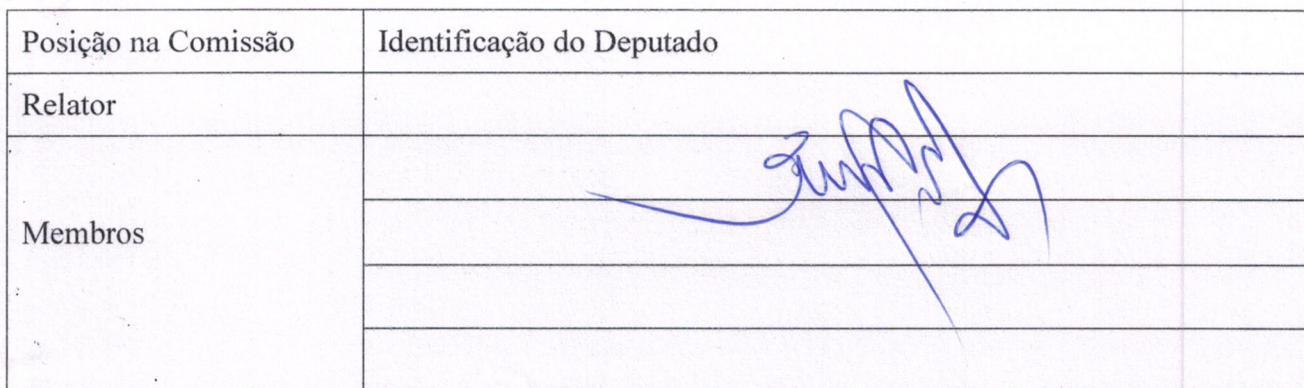 Posição na Comissão Identificação do Deputado
Relator
Membros